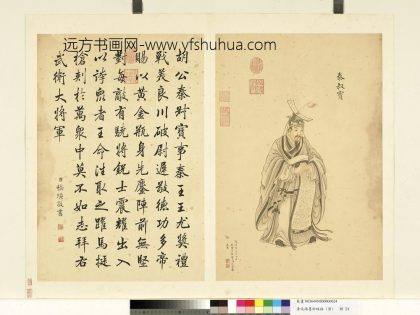 远方书画网-www.yfshuhua.com
秦叔寶
胡公秦叔寶事秦王王尤獎禮
戰美良川破尉遲敬德功多帝
賜以黃金瓶身先鏖陣前無堅
對每敵有驍將銳士震耀出入
以誇眾者王命往取之躍馬挺
槍刺於萬眾中莫不如志拜右
武衛大將軍
敬書